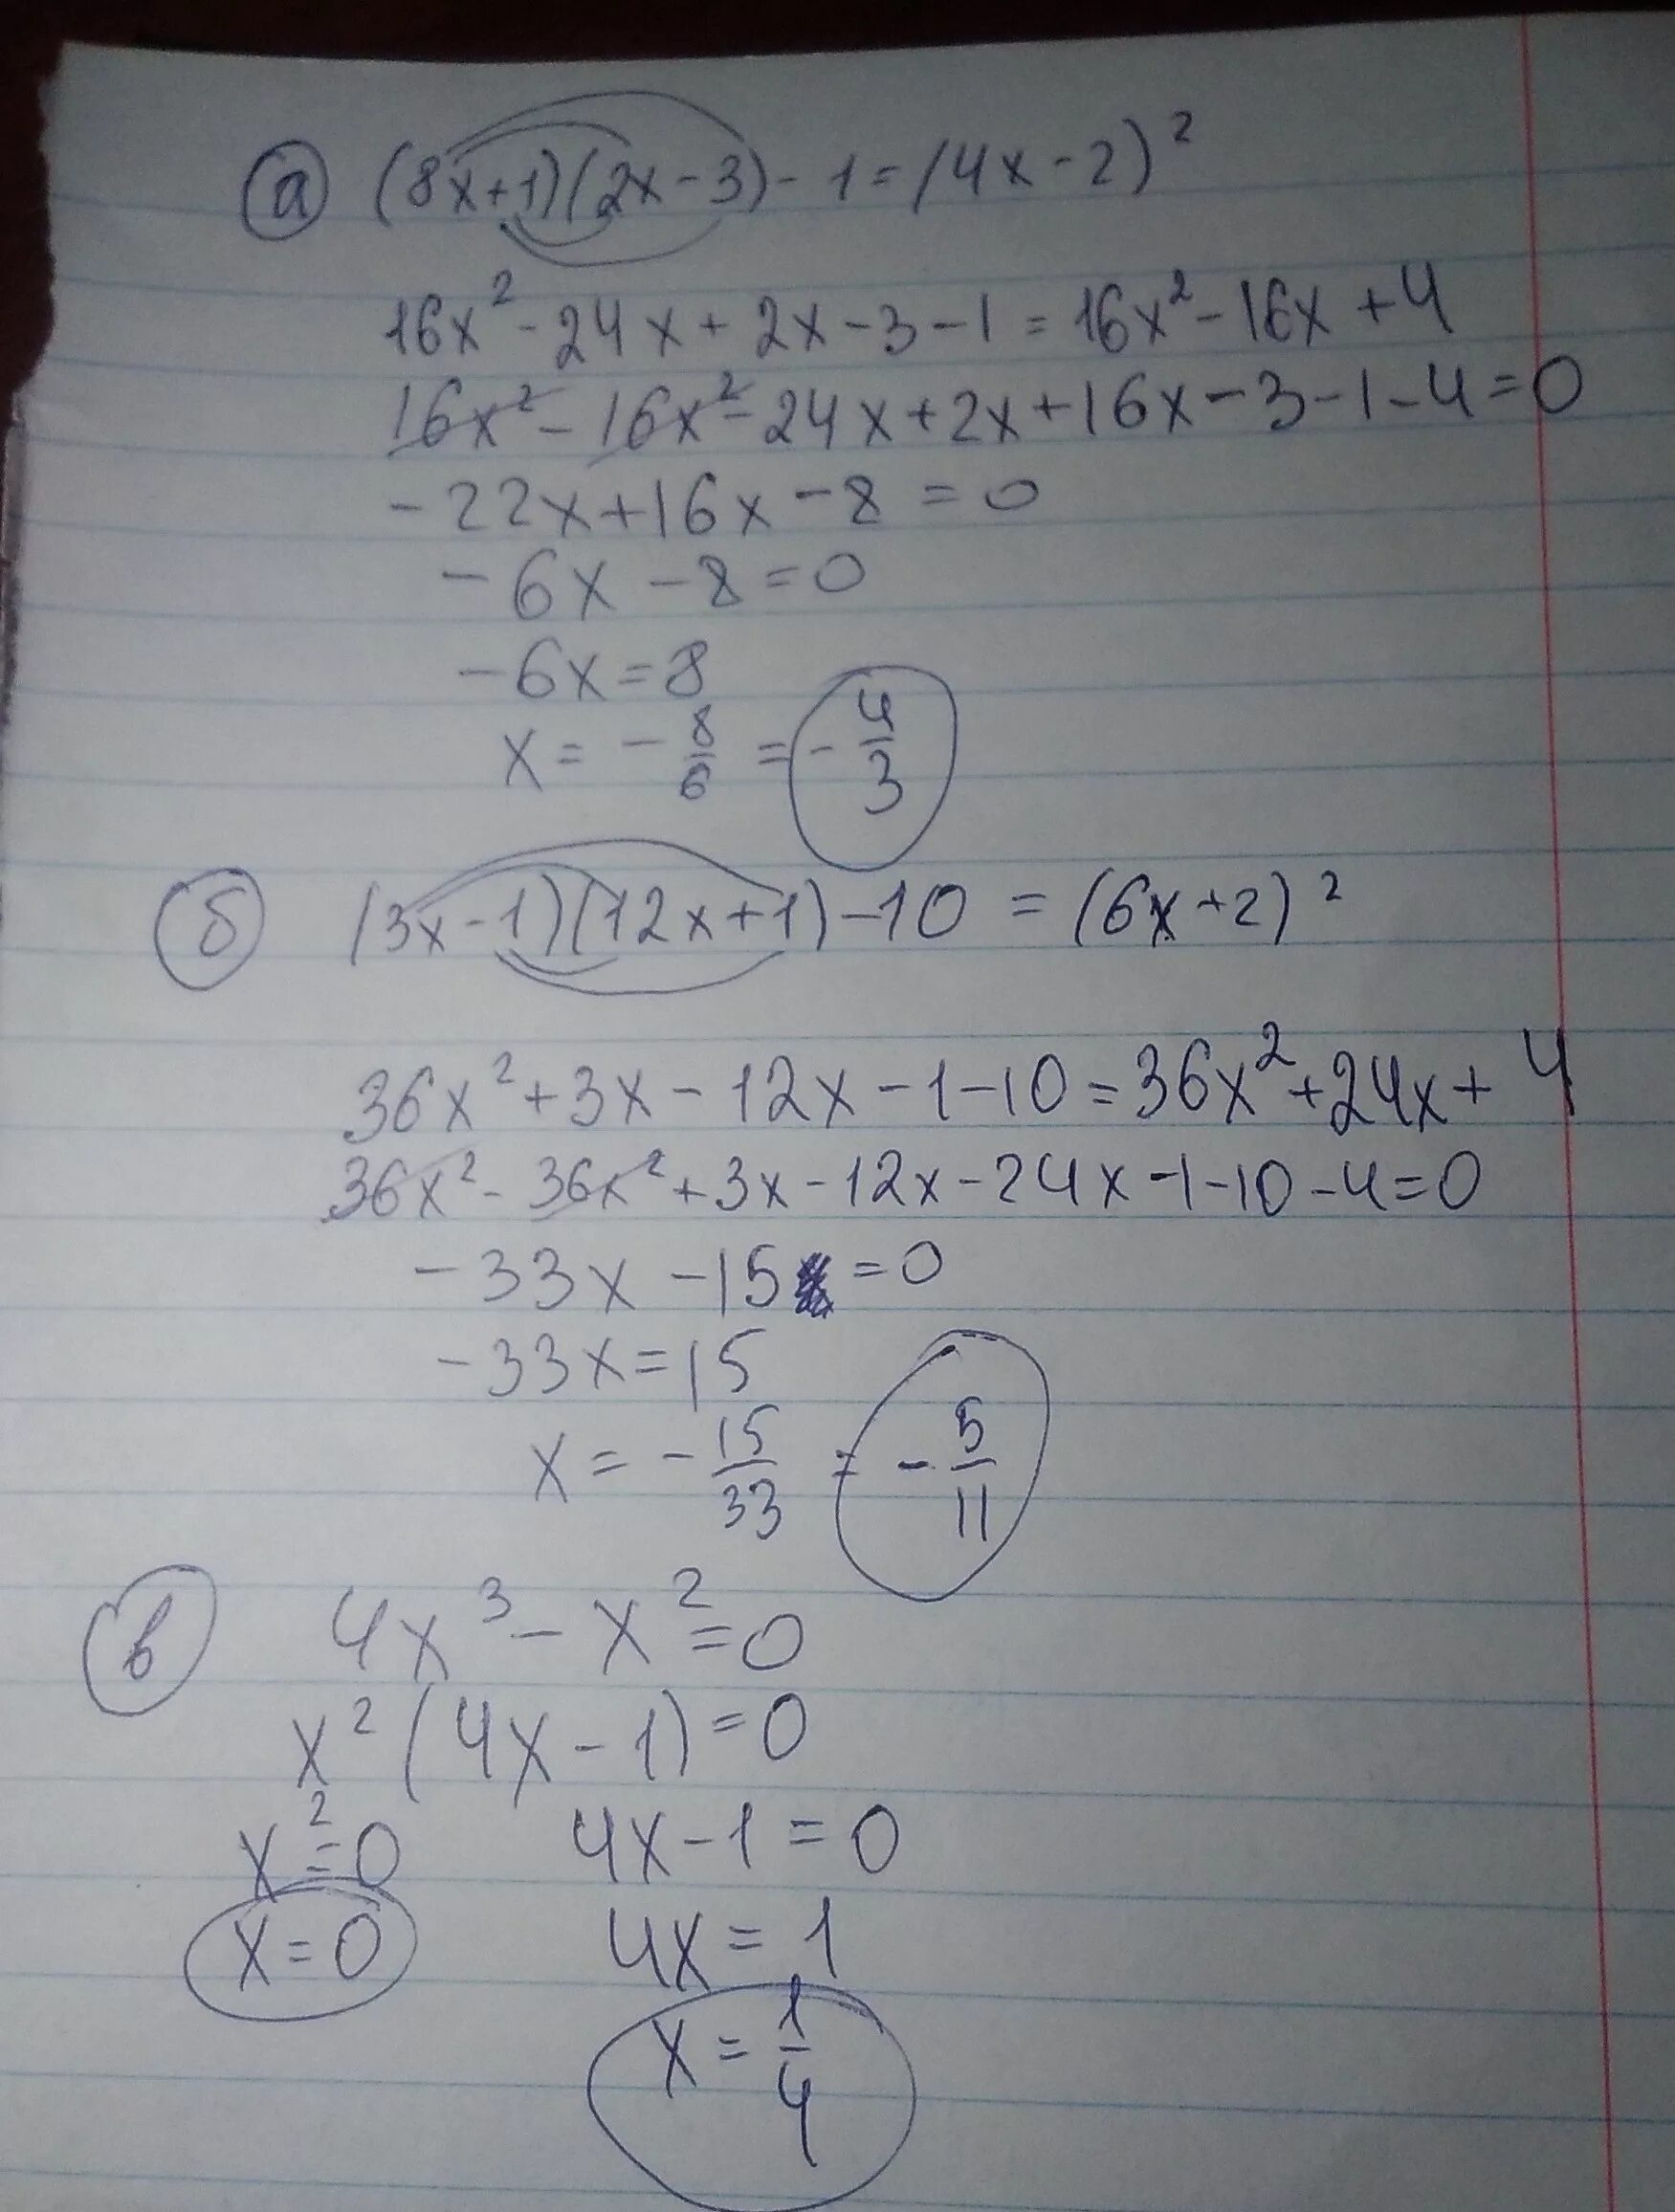 а (8x+1)(2x-3)-1=(4x-2)²
16x²-24x+2x-3-1=16x²-16x+4
16x²-16x²-24x+2x+16x-3-1-4=0
-22x+16x-8=0
-6x-8=0
-6x=8
x=-8/6=-4/3
б (3x-1)(12x+1)-10=(6x+2)²
36x²+3x-12x-1-10=36x²+24x+4
36x²-36x²+3x-12x-24x-1-10-4=0
-33x-15=0
-33x=15
x=-15/33=-5/11
в 4x³-x²=0
x²(4x-1)=0
x²=0 4x-1=0
x=0 4x=1
x=1/4